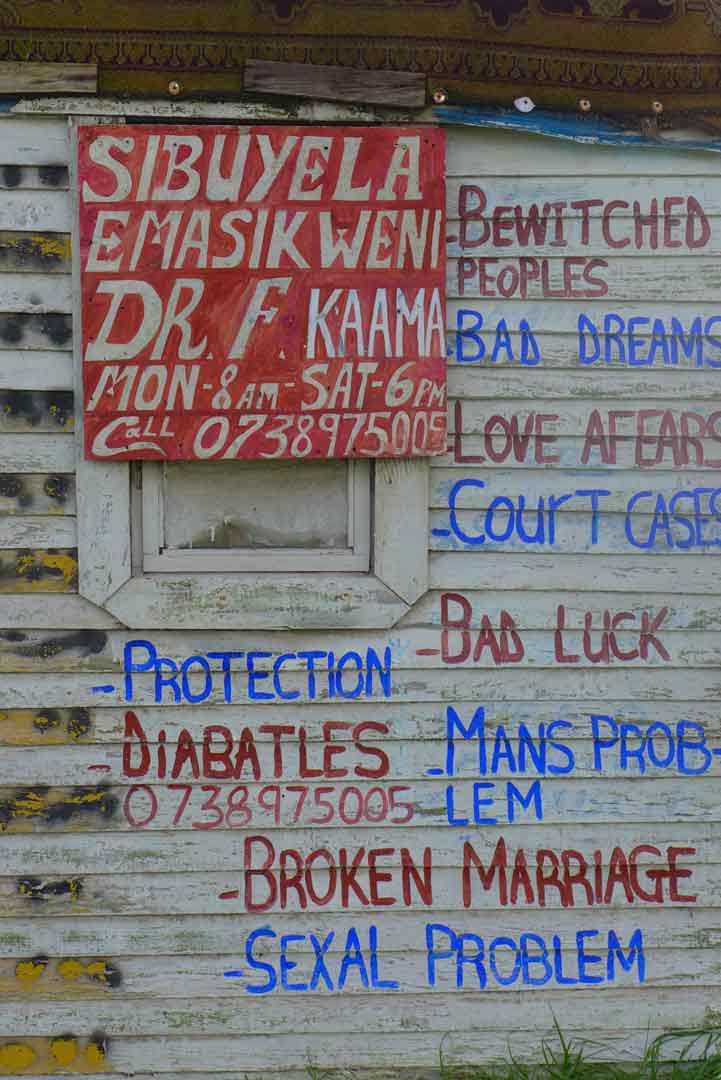 SIBUYELA
EMASIKWENI
DR. F. KAAMA
MON-8AM-SAT-6PM
CALL 0738975005
-BEWITCHED
PEOPLES
-BAD DREAMS
-LOVE AFEARS
-COURT CASES
-BAD LUCK
-PROTECTION
-DIABATLES
0738975005
-MANS PROB-
LEM
-BROKEN MARRIAGE
-SEXAL PROBLEM